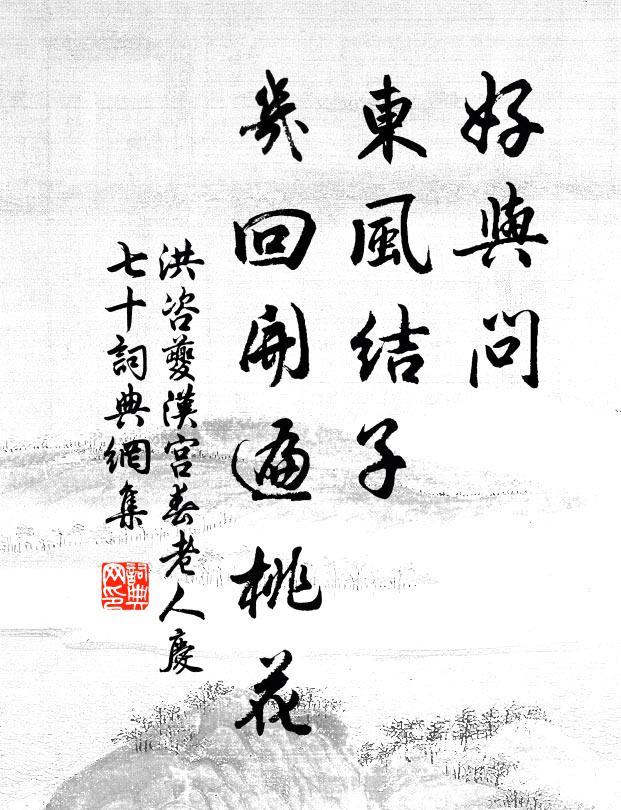 好與問
東風結子
幾回開遍桃花
洪咨夔漢宮春老人慶
七十詞典網集
詞典
网印